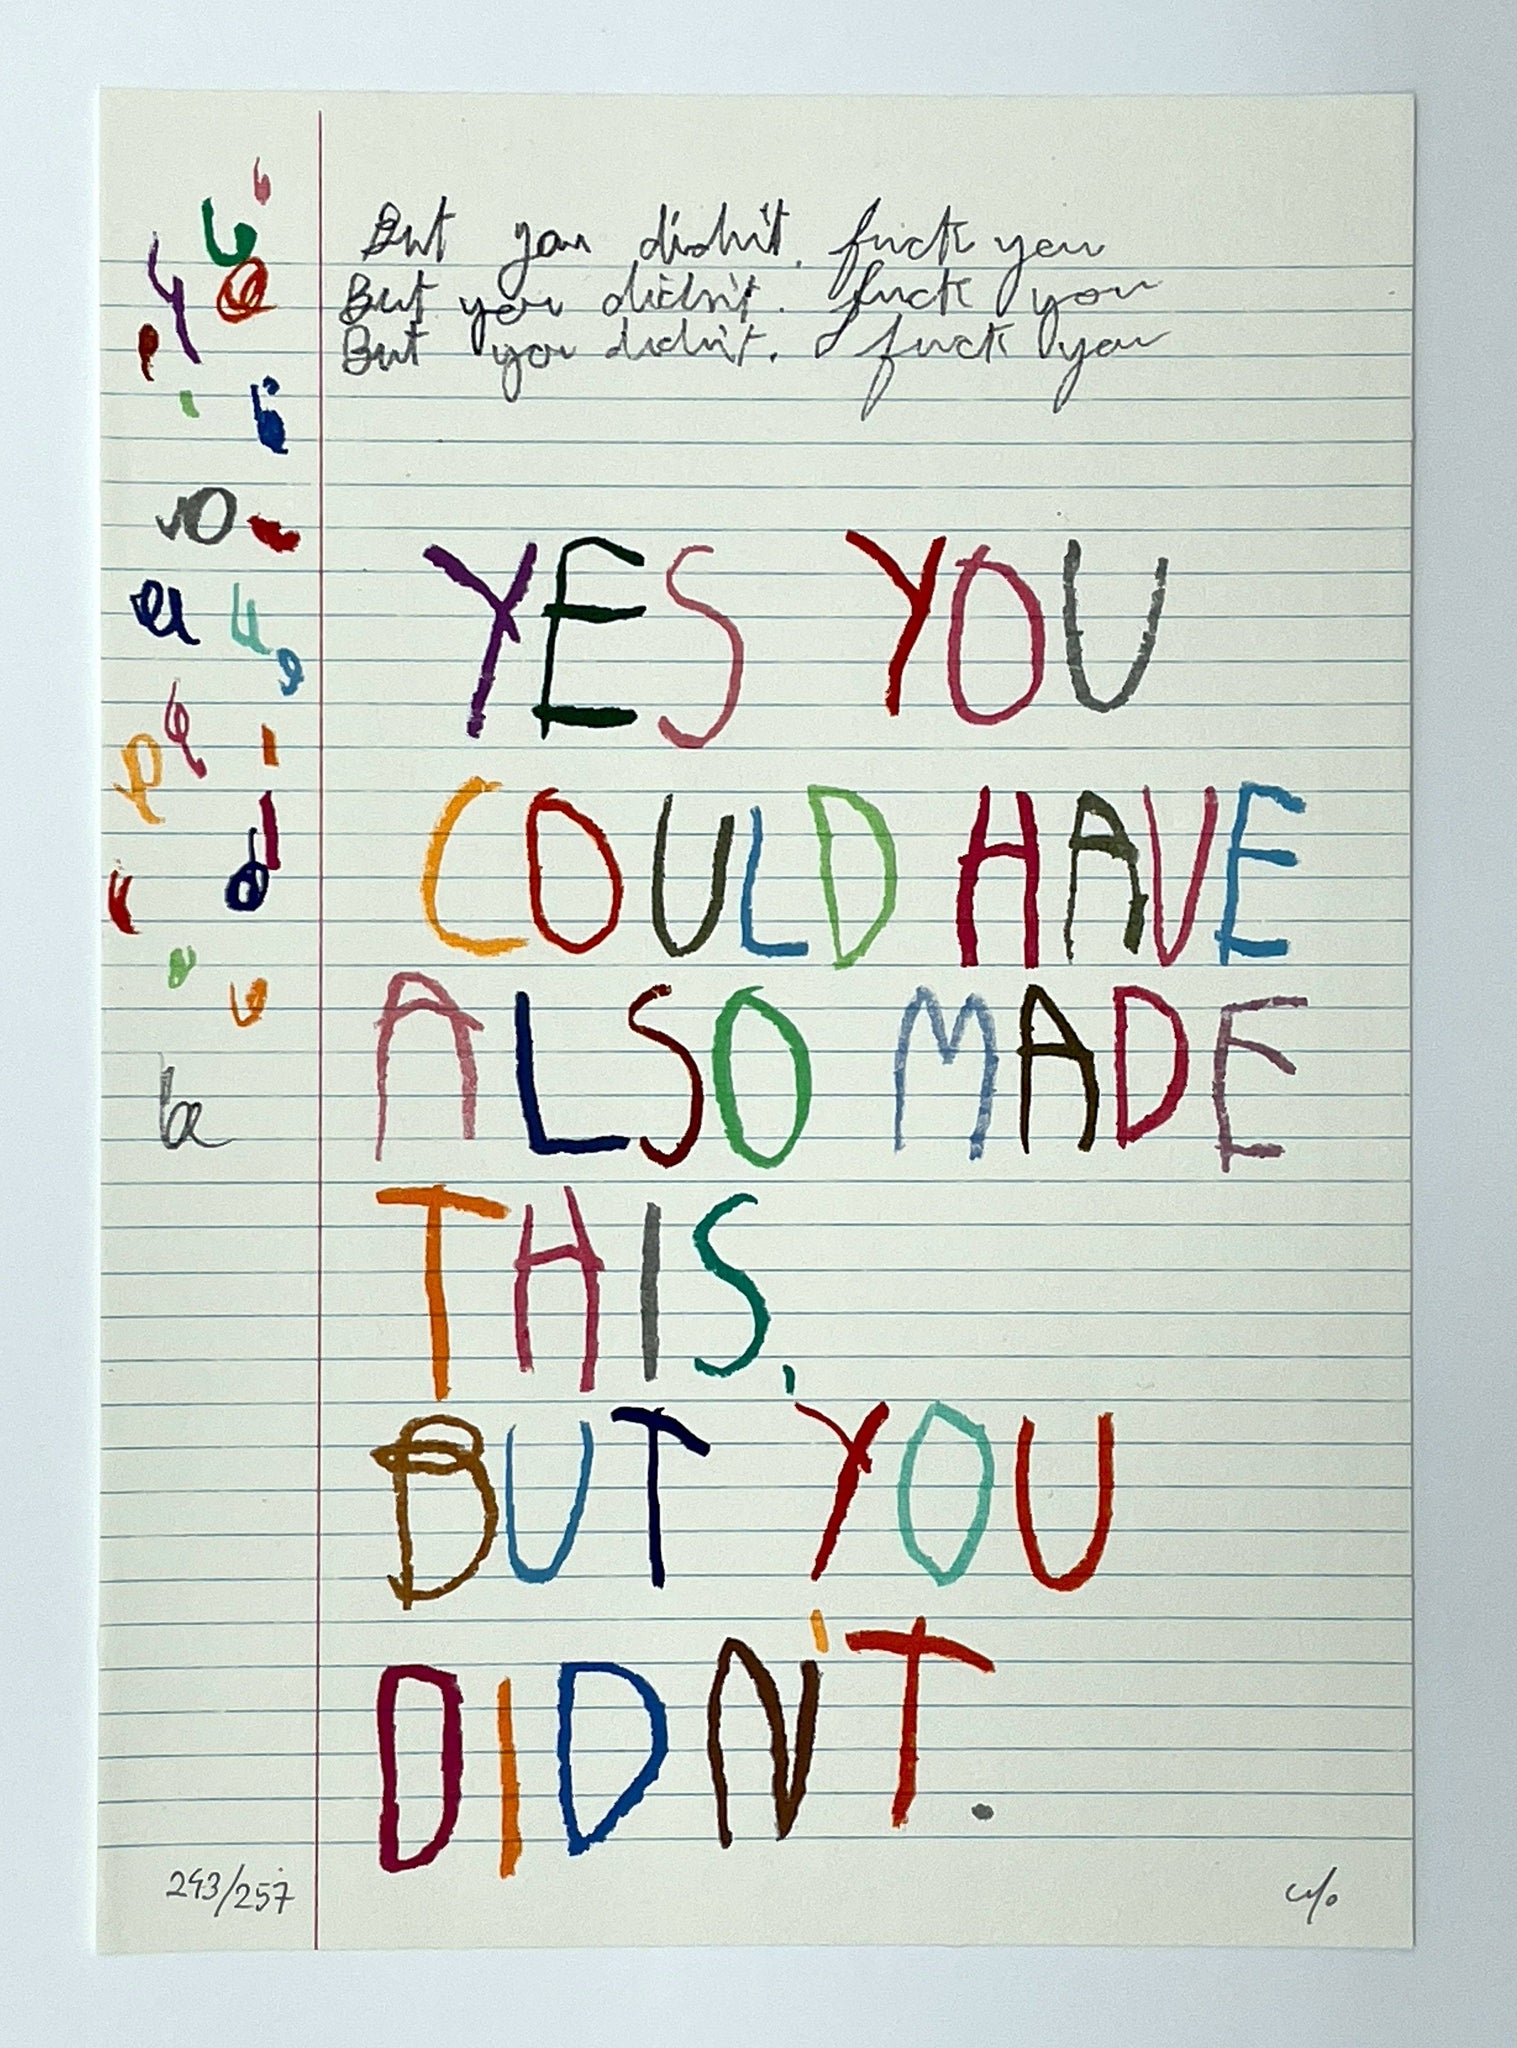 But you didn't. fuck you
But you didn't. fuck you
But you didn't. fuck you
YES YOU
COULD HAVE
ALSO MADE
THIS,
BUT YOU
DIDN'T.
243/257